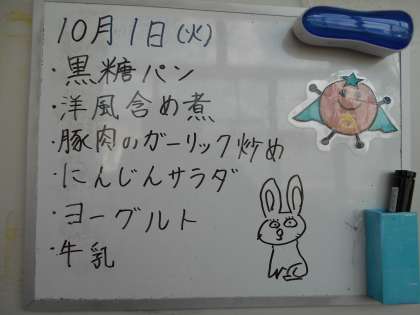 10月1日(火)
・黒糖パン
・洋風含め煮
・豚肉のガーリック炒め
・にんじんサラダ
・ヨーグルト
・牛乳